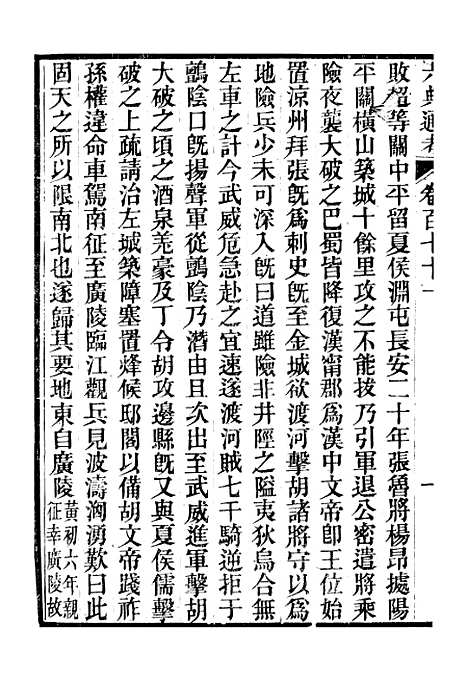 六典通考 卷百七十一 一
敗超等關中平留夏侯淵屯長安二十年張魯將楊昂據陽
平關橫山築城十餘里攻之不能拔乃引軍退公密遣將乘
險夜襲大破之巴蜀皆降復漢甯郡爲漢中文帝卽王位始
置涼州拜張旣爲刺史旣至金城欲渡河擊胡諸將守以爲
地險兵少未可深入旣曰道雖險非井陘之隘夷狄烏合無
左車之計今武威危急赴之宜速遂渡河賊七千騎逆拒于
鸇陰口旣揚聲軍從鸇陰乃潛由且次出至武威進軍擊胡
大破之頃之酒泉羌豪及丁令胡攻邊縣旣又與夏侯儒擊
破之上疏請治左城築障塞置烽候邸閣以備胡文帝踐祚
孫權違命車駕南征至廣陵臨江觀兵見波濤洶湧歎曰此
固天之所以限南北也遂歸其要地東自廣陵黃初六年親征幸廣陵故